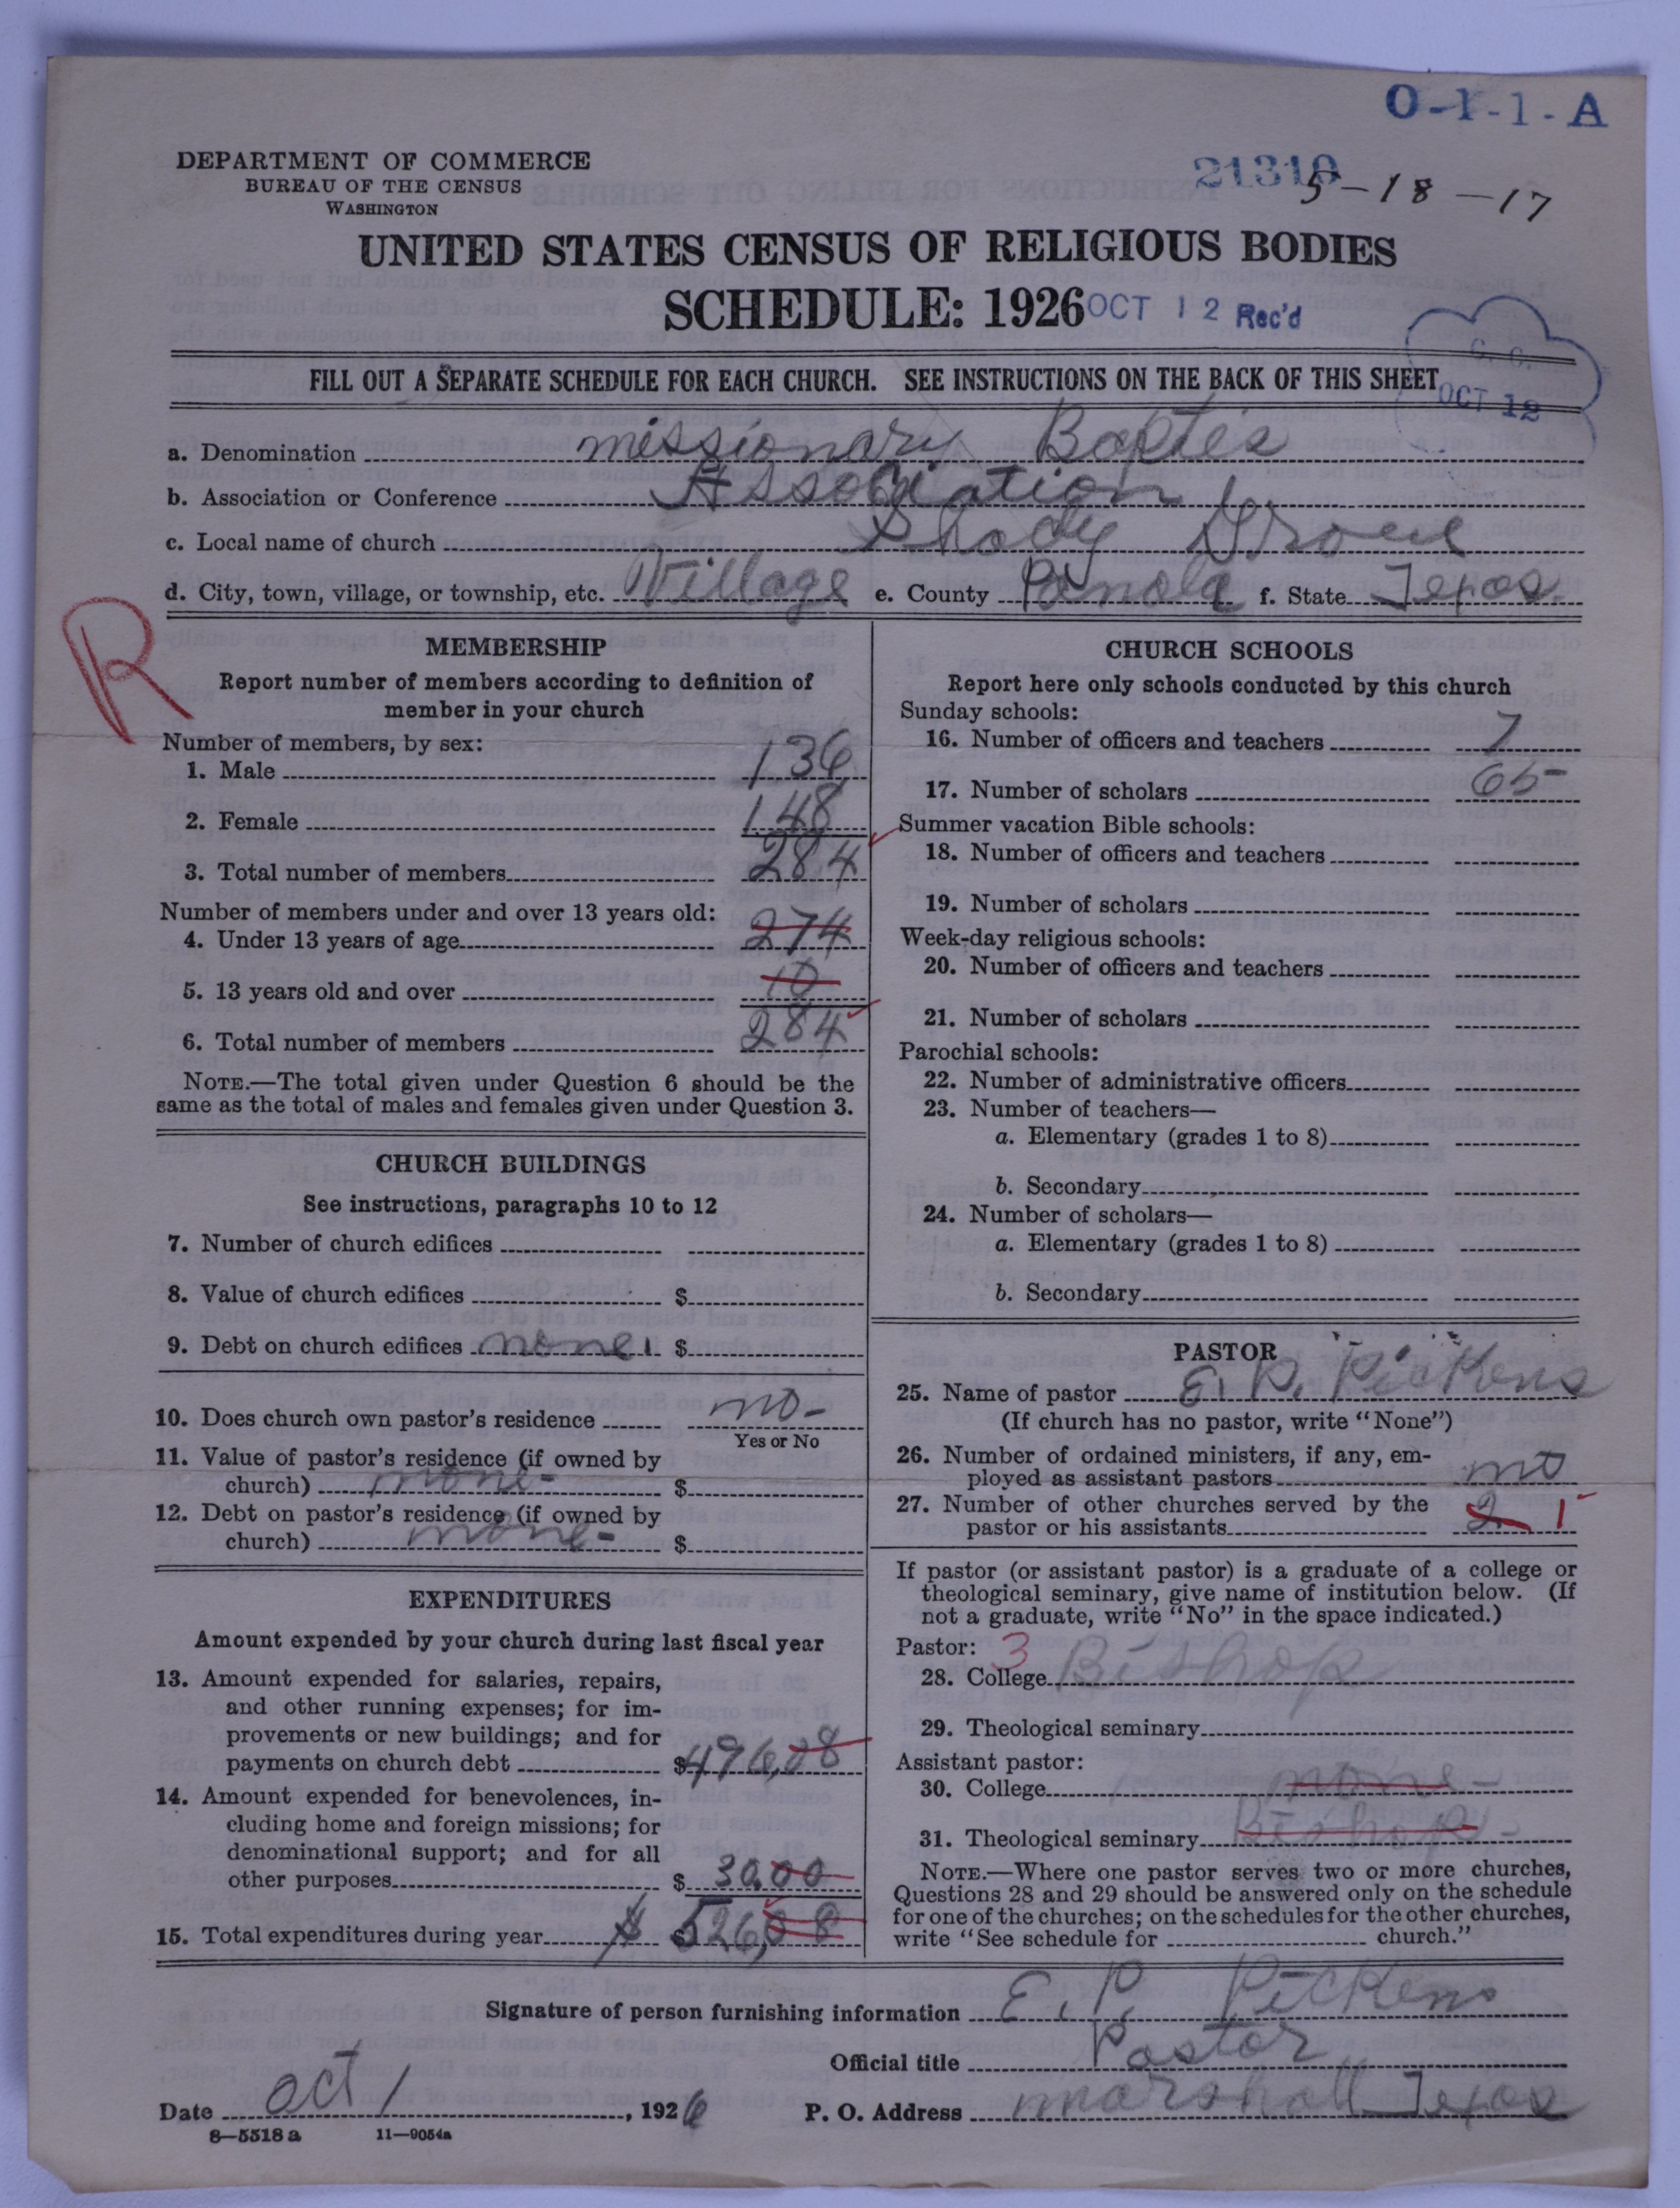 O-1-1-A
DEPARTMENT OF COMMERCE
BUREAU OF THE CENSUS
WASHINGTON
21310
5-18-17
UNITED STATES CENSUS OF RELIGIOUS BODIES
SCHEDULE: 1926
OCT 12 Rec'd
FILL OUT A SEPARATE SCHEDULE FOR EACH CHURCH. SEE INSTRUCTIONS ON THE BACK OF THIS SHEET
C. C.
OCT 12
a. Denomination missionary Baptis
b. Association or Conference Association
c. Local name of church Shady Grove
d. City, town, village, or township, etc. Village e. County Panola f. State Texas.
R
MEMBERSHIP
Report number of members according to definition of
member in your church
Number of members, by sex:
1. Male 136
2. Female 148
3. Total number of members 284
Number of members under and over 13 years old:
4. Under 13 years of age 274
5. 13 years old and over 10
6. Total number of members 284
NOTE.—The total given under Question 6 should be the
same as the total of males and females given under Question 3.
CHURCH BUILDINGS
See instructions, paragraphs 10 to 12
7. Number of church edifices
8. Value of church edifices $
9. Debt on church edifices none $
10. Does church own pastor's residence no-
Yes or No
11. Value of pastor's residence (if owned by
church) none- $
12. Debt on pastor's residence (if owned by
church) none- $
EXPENDITURES
Amount expended by your church during last fiscal year
13. Amount expended for salaries, repairs,
and other running expenses; for im-
provements or new buildings; and for
payments on church debt $496,08
14. Amount expended for benevolences, in-
cluding home and foreign missions; for
denominational support; and for all
other purposes $ 30.00
15. Total expenditures during year $ $ 526,08
CHURCH SCHOOLS
Report here only schools conducted by this church
Sunday schools:
16. Number of officers and teachers 7
17. Number of scholars 65
Summer vacation Bible schools:
18. Number of officers and teachers
19. Number of scholars
Week-day religious schools:
20. Number of officers and teachers
21. Number of scholars
Parochial schools:
22. Number of administrative officers
23. Number of teachers—
a. Elementary (grades 1 to 8)
b. Secondary
24. Number of scholars—
a. Elementary (grades 1 to 8)
b. Secondary
PASTOR
25. Name of pastor E. P. Pickens
(If church has no pastor, write "None")
26. Number of ordained ministers, if any, em-
ployed as assistant pastors no
27. Number of other churches served by the
pastor or his assistants 2 1
If pastor (or assistant pastor) is a graduate of a college or
theological seminary, give name of institution below. (If
not a graduate, write "No" in the space indicated.)
Pastor: 3
28. College Bishop
29. Theological seminary
Assistant pastor:
30. College none-
31. Theological seminary Bishop-
NOTE.—Where one pastor serves two or more churches,
Questions 28 and 29 should be answered only on the schedule
for one of the churches; on the schedules for the other churches,
write "See schedule for church."
Signature of person furnishing information E. P. Pickens
Official title Pastor
Date Oct 1, 1926 P. O. Address marshall Texas
8—5518 a 11—9054a